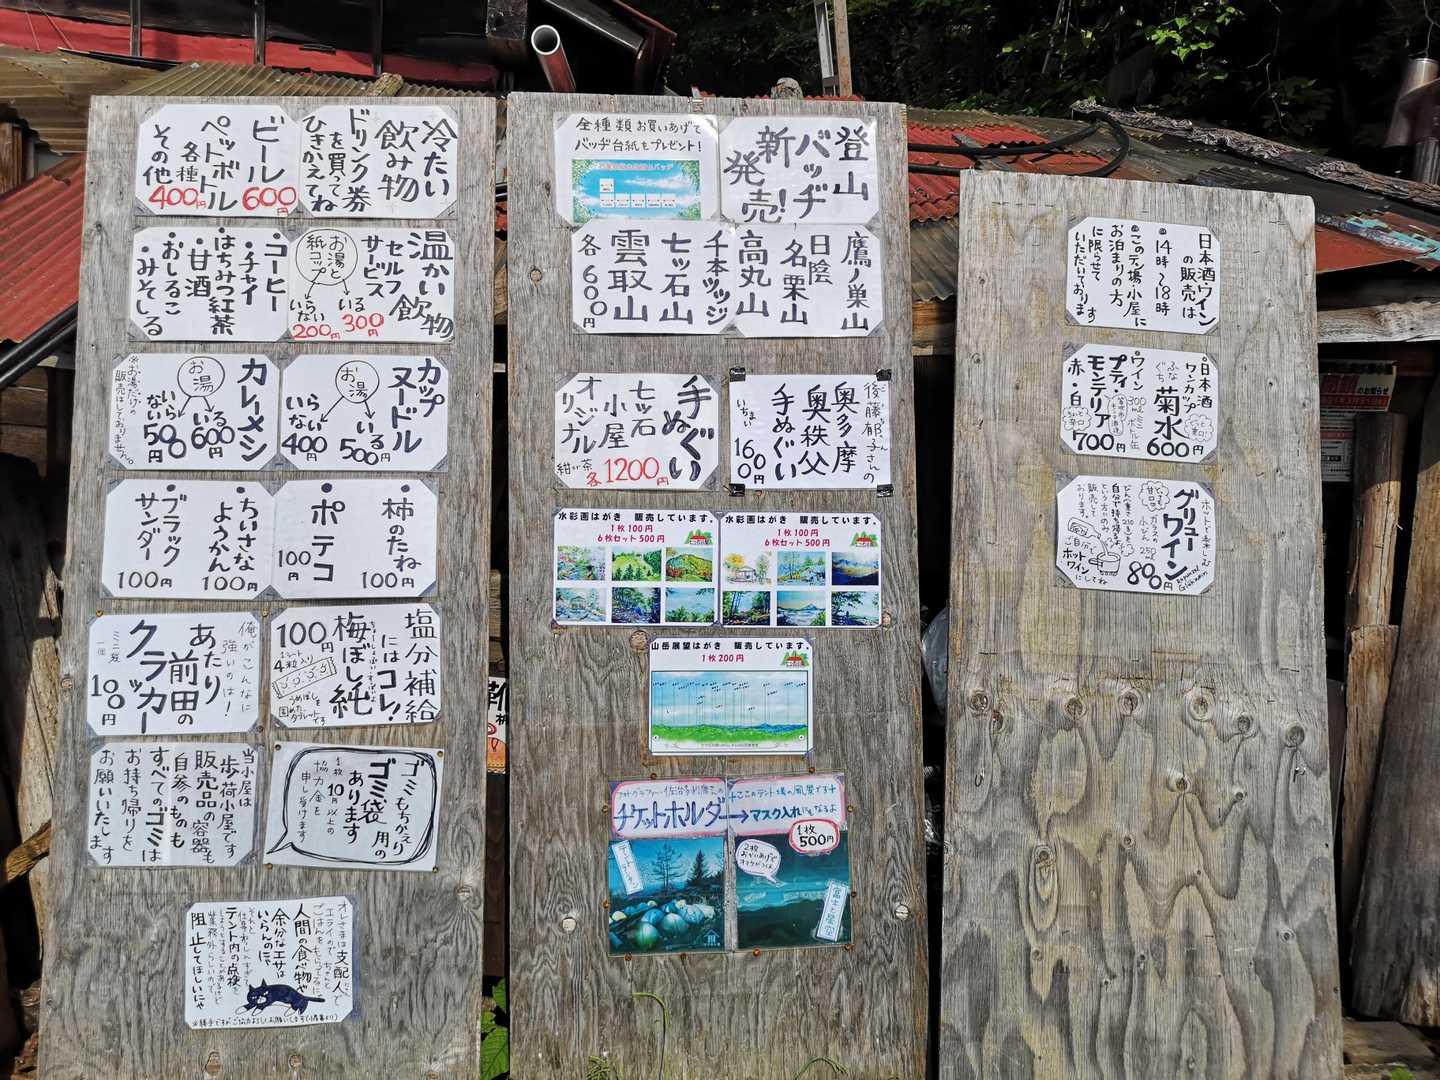 冷たい
飲み物
ドリンク券
を買って
ひきかえてね
ビール
600円
ペットボトル
各種
その他
400円
温かい飲物
セルフ
サービス
お湯と
紙コップ
いる
300円
いらない
200円
・コーヒー
・チャイ
・はちみつ紅茶
・甘酒
・おしるこ
・みそしる
カップ
ヌードル
お湯
いる
500円
いらない
400円
カレーメシ
お湯
いる
600円
いらない
500円
※お湯だけの
販売はしておりません。
・柿のたね
100円
・ポテコ
100円
・ちいさな
ようかん
100円
・ブラック
サンダー
100円
塩分補給
にはコレ!
梅ぼし純
100円
1シート
4粒入り
うめぼしを
固めた
タブレットです
俺がこんなに
強いのは!
あたり
前田の
クラッカー
ミニ袋
一個
100円
ゴミもちかえり
用の
ゴミ袋
あります
1枚10円以上の
協力金を
申し受けます
当小屋は
歩荷小屋です
販売品の容器も
自参のものも
すべてのゴミは
お持ち帰りを
お願いいたします
オレさまは支配人で
エライので ちゃんと
ごはんをもらってるに、
人間の食べ物や
余分なエサは
いらんのにゃ
テント内の点検を
阻止してほしいにゃ
登山
バッヂ
新発売!
全種類お買いあげで
バッヂ台紙もプレゼント!
鷹ノ巣山
日陰名栗山
高丸山
千本ツツジ
七ッ石山
雲取山
各600円
手ぬぐい
七ッ石
小屋
オリジナル
紺or茶
各1200円
後藤郁子さんの
奥多摩
奥秩父
手ぬぐい
いちまい
1600円
水彩画はがき 販売しています。
1枚100円
6枚セット500円
水彩画はがき 販売しています。
1枚100円
6枚セット500円
山岳展望はがき 販売しています。
1枚200円
チケットホルダー
→マスク入れにもなるよ
+ここのテント場の風景です+
1枚
500円
2枚
おかいあげで
テントランタン
富士と星空
日本酒ワイン
の販売は
◎14時~18時
◎このテン場小屋に
お泊まりの方
に限らせて
いただいております
・日本酒
ワンカップ
ふなぐち
菊水
600円
・ワイン
300mlミニボトル缶
プティ
モンテリア
赤・白
700円
ホットで楽しむ
グリューワイン
ガラスの
小びん
250ml
800円
とっても
甘口
びん(重さ230g)を
自分で持ち帰る
という方にのみ
販売して
おります。
ご自分で
ホット
ワイン
にしてね